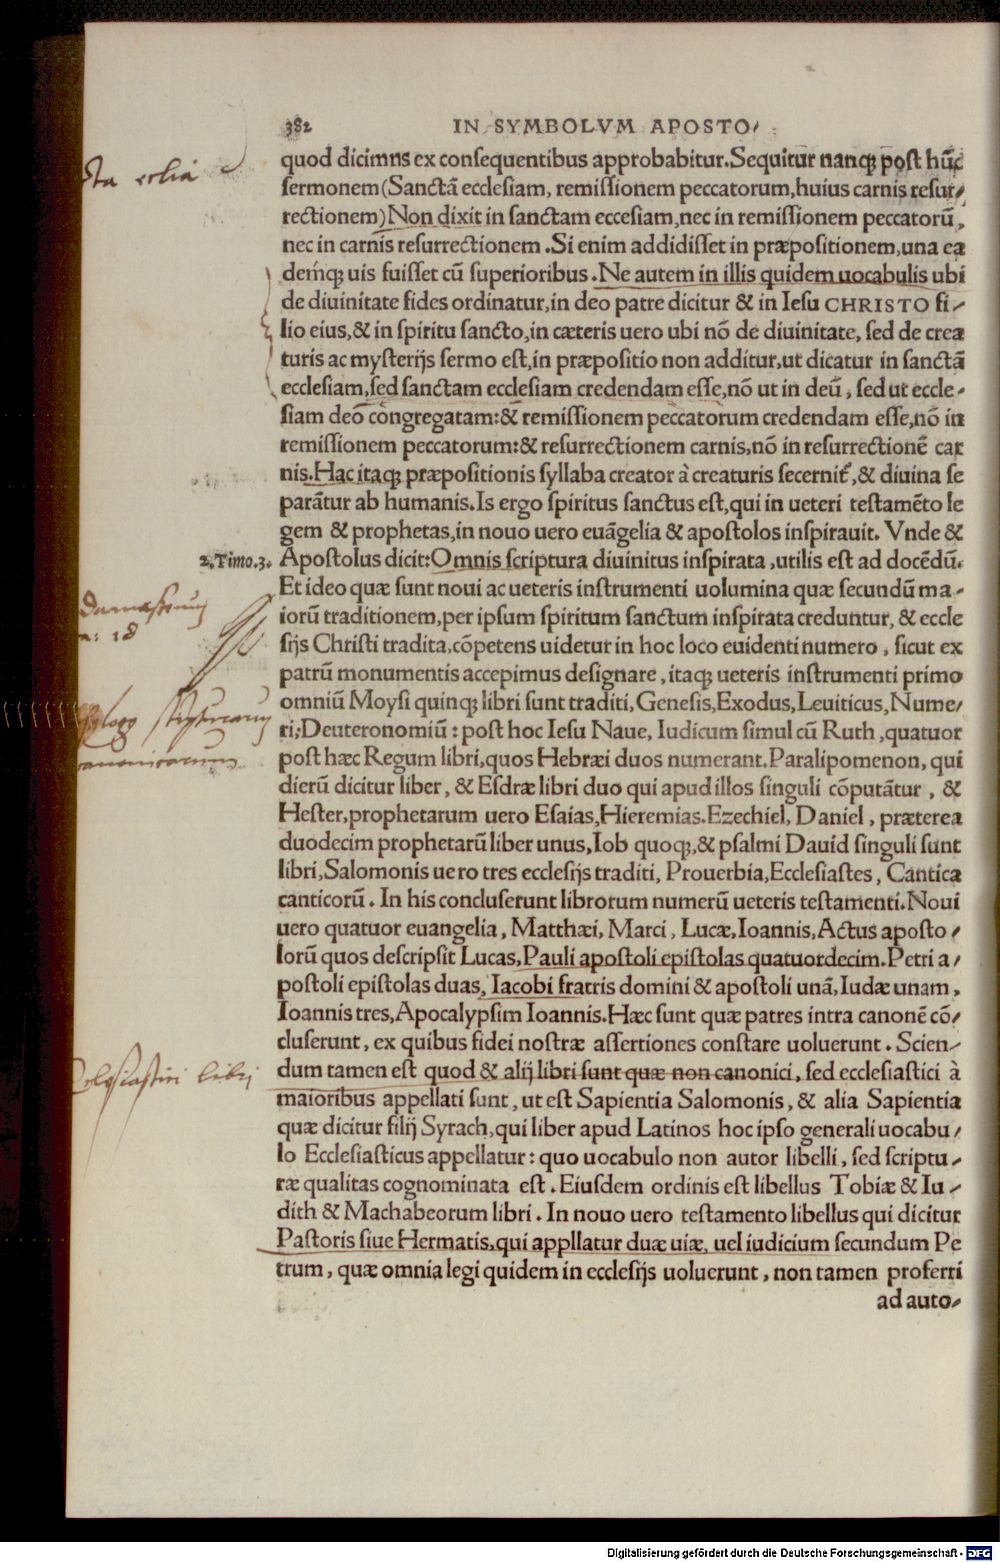 382 IN SYMBOLVM APOSTO/
quod dicimns ex consequentibus approbabitur.Sequitur nanqꝫ post hũc
sermonem(Sanctã ecclesiam, remissionem peccatorum,huius carnis resur/
rectionem)Non dixit in sanctam eccesiam,nec in remissionem peccatorũ,
nec in carnis resurrectionem.Si enim addidisset in præpositionem,una ea
demꝙ uis fuisset cũ superioribus.Ne autem in illis quidem uocabulis ubi
de diuinitate fides ordinatur,in deo patre dicitur & in Iesu CHRISTO fi/
lio eius,& in spiritu sancto,in cæteris uero ubi nõ de diuinitate, sed de crea
turis ac mysterijs sermo est,in præpositio non additur,ut dicatur in sanctã
ecclesiam,sed sanctam ecclesiam credendam esse,nõ ut in deũ, sed ut eccle-
siam deo congregatam:& remissionem peccatorum credendam esse,nõ in
remissionem peccatorum:& resurrectionem carnis,nõ in resurrectionẽ car
nis.Hac itaqꝫ præpositionis syllaba creator à creaturis secernit᷑,& diuina se
parãtur ab humanis.Is ergo spiritus sanctus est,qui in ueteri testamẽto le
gem & prophetas,in nouo uero euãgelia & apostolos inspirauit. Vnde &
2.Timo.3. Apostolus dicit:Omnis scriptura diuinitus inspirata,utilis est ad docẽdũ.
Et ideo quæ sunt noui ac ueteris instrumenti uolumina quæ secundũ ma-
Damascenus
iorũ traditionem,per ipsum spiritum sanctum inspirata creduntur, & eccle
sijs Christi tradita,cõpetens uidetur in hoc loco euidenti numero, sicut ex
patrũ monumentis accepimus designare, itaqꝫ ueteris instrumenti primo
omniũ Moysi quinqꝫ libri sunt traditi, Genesis,Exodus,Leuiticus,Nume/
ri;Deuteronomiũ: post hoc Iesu Naue, Iudicum simul cũ Ruth,quatuor
post hæc Regum libri,quos Hebræi duos numerant.Paralipomenon, qui
dierũ dicitur liber, & Esdræ libri duo qui apud illos singuli cõputãtur, &
Hester,prophetarum uero Esaias,Hieremias.Ezechiel, Daniel, præterea
duodecim prophetarũ liber unus,Iob quoqꝫ,& psalmi Dauid singuli sunt
libri,Salomonis uero tres ecclesijs traditi, Prouerbia,Ecclesiastes, Cantica
canticorũ. In his concluserunt librorum numerũ ueteris testamenti.Noui
uero quatuor euangelia, Matthæi, Marci, Lucæ,Ioannis,Actus aposto/
lorũ quos descripsit Lucas,Pauli apostoli epistolas quatuordecim.Petri a/
postoli epistolas duas, Iacobi fratris domini & apostoli unã,Iudæ unam,
Ioannis tres,Apocalypsim Ioannis.Hæc sunt quæ patres intra canonẽ cõ/
cluserunt, ex quibus fidei nostræ assertiones constare uoluerunt. Scien/
dum tamen est quod & alij libri sunt quæ non canonici, sed ecclesiastici à
maioribus appellati sunt, ut est Sapientia Salomonis, & alia Sapientia
quæ dicitur filij Syrach,qui liber apud Latinos hoc ipso generali uocabu/
lo Ecclesiasticus appellatur: quo uocabulo non autor libelli, sed scriptu/
ræ qualitas cognominata est. Eiusdem ordinis est libellus Tobiæ & Iu/
dith & Machabeorum libri. In nouo uero testamento libellus qui dicitur
Pastoris siue Hermatis,qui appllatur duæ uiæ, uel iudicium secundum Pe
trum, quæ omnia legi quidem in ecclesijs uoluerunt, non tamen proferri
ad auto/
Digitalisierung gefördert durch die Deutsche Forschungsgemeinschaft - DFG